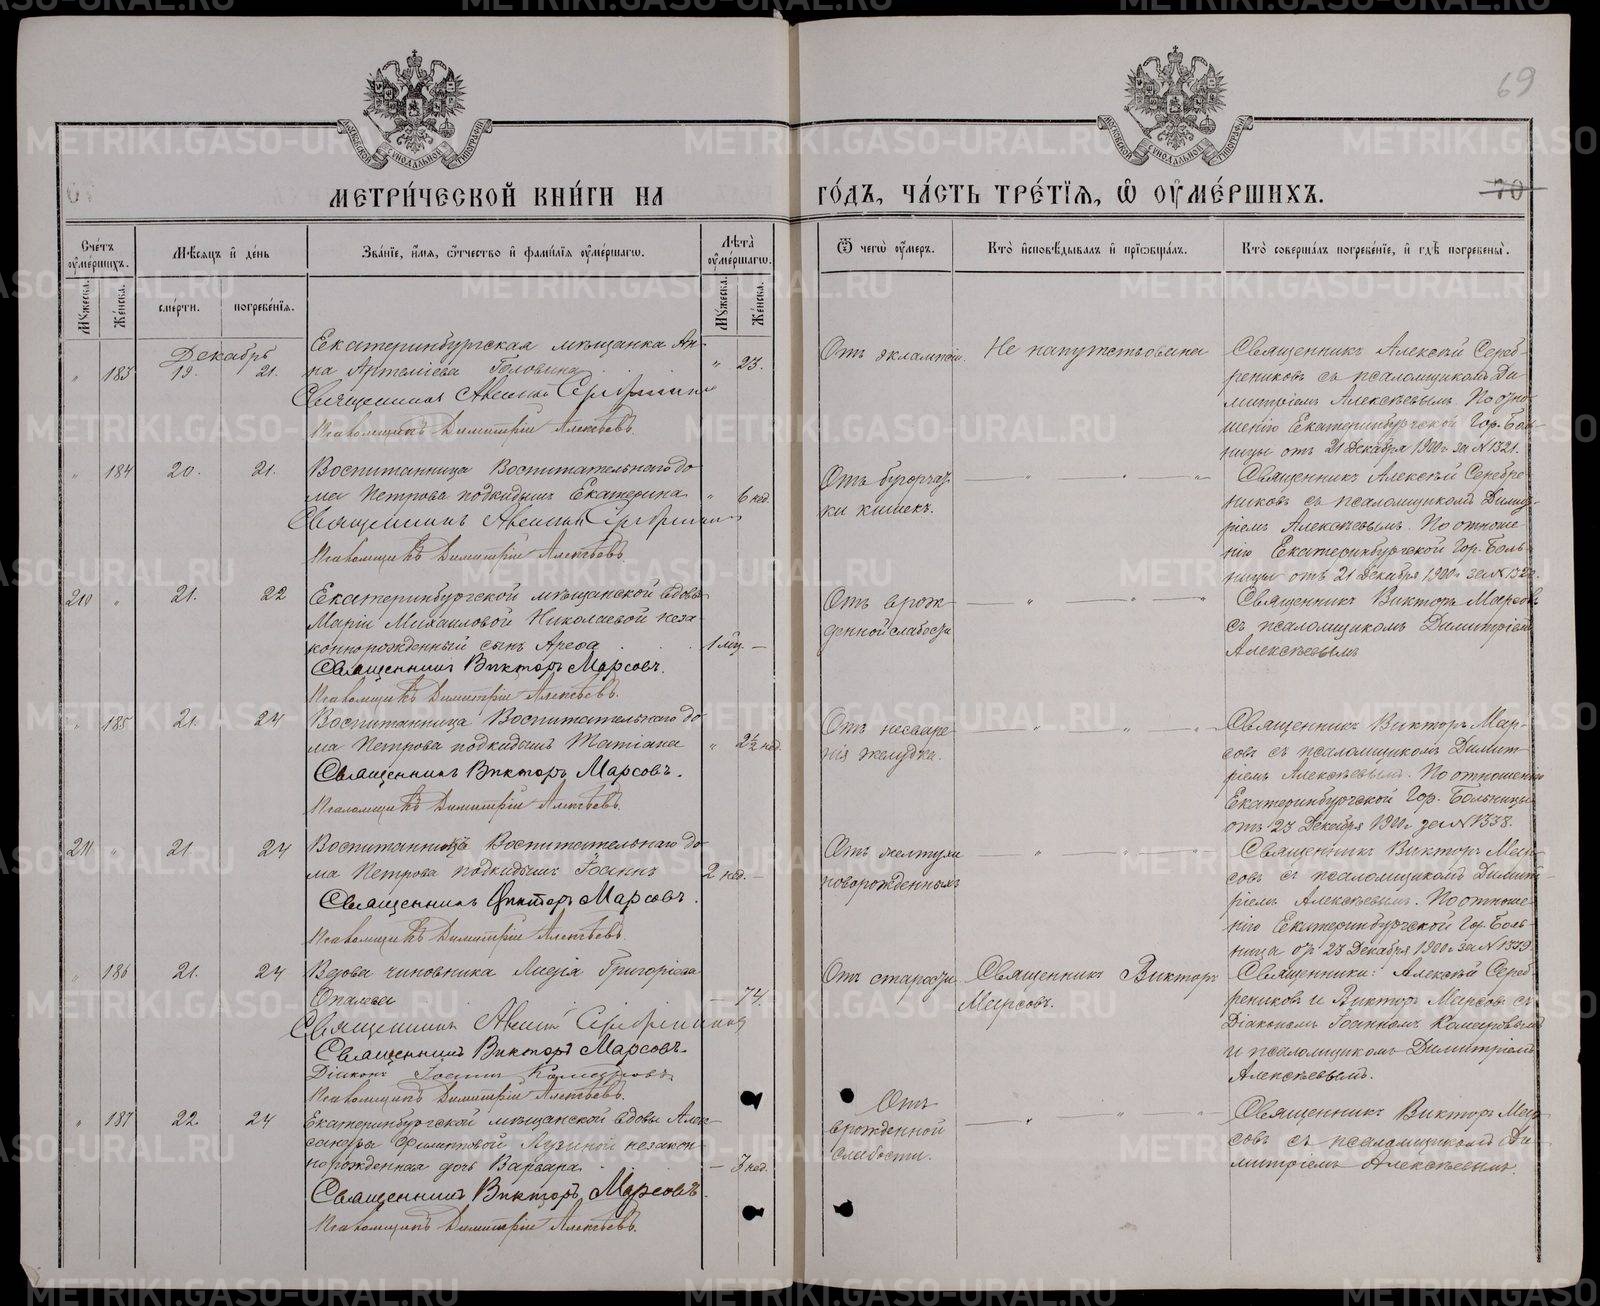 69
МОСКОВСКОЙ СѴНОДАЛЬНОЙ ТИПОГРАФІИ
МОСКОВСКОЙ СѴНОДАЛЬНОЙ ТИПОГРАФІИ
МЕТРИ́ЧЕСКОЙ КНИ́ГИ НА ГО́ДЪ, ЧА́СТЬ ТРЕ́ТІЯ, Ѡ҆ ОУ҆МЕ́РШИХЪ.
70
Сче́тъ оу҆ме́ршихъ.
Мѣ́сяцъ и҆ де́нь
Зва́нїе, и҆́мя, ѻ҆́тчество и҆ фами́лїя оу҆ме́ршагѡ.
Лѣ́та оу҆ме́ршагѡ.
Ѿ чегѡ̀ оу҆́меръ.
Кто̀ и҆сповѣ́дывалъ и҆ прїѡбща́лъ.
Кто̀ соверша́лъ погребе́нїе, и҆ гдѣ̀ погребены̀.
Мꙋ́жеска.
Же́нска.
сме́рти.
погребе́нїя.
Мꙋ́жеска.
Же́нска.
Декабрь
" 183 19. 21.
Екатеринбургская мѣщанка Ан-
на Артеміева Головина
" 23.
Священникъ Алексій Серебренниковъ
Псаломщикъ Димитрій Алексѣевъ.
Отъ эклампсіи.
Не напутствована
Священникъ Алексѣй Сереб-
рениковъ съ псаломщикомъ Ди-
митріемъ Алексѣевымъ. По отно-
шенію Екатеринбургской Гор. Боль-
ницы отъ 21 Декабря 1900 г. за N 1321.
" 184 20. 21.
Воспитанница Воспитательнаго до-
ма Петрова подкидышъ Екатерина
" 6 нед.
Священникъ Алексій Серебренниковъ
Псаломщикъ Димитрій Алексѣевъ.
Отъ бугорчат-
ки кишекъ.
" " "
Священникъ Алексѣй Серебре-
никовъ съ псаломщикомъ Димит-
ріемъ Алексѣевымъ. По отноше-
нію Екатеринбургской Гор. Боль-
ницы отъ 21 Декабря 1900 г. за N 1322.
210 " 21. 22
Екатеринбургской мѣщанской вдовы
Маріи Михаиловой Николаевой неза-
коннорожденный сынъ
1 мѣс. —
Священникъ Викторъ Марсовъ.
Псаломщикъ Димитрій Алексѣевъ.
Отъ врож-
денной слабости
" " "
Священникъ Викторъ Марсовъ
съ псаломщикомъ Димитріемъ
Алексѣевымъ
" 185 21. 24
Воспитанница Воспитательнаго до-
ма Петрова подкидышъ Татіана
" 2½ нед.
Священникъ Викторъ Марсовъ.
Псаломщикъ Димитрій Алексѣевъ.
Отъ несваре-
нія желудка.
" " "
Священникъ Викторъ Мар-
совъ съ псаломщикомъ Димит-
ріемъ Алексѣевымъ. По отношенію
Екатеринбургской Гор. Больницы
отъ 23 Декабря 1900 г. за N 1338.
211 " 21. 24
Воспитанникъ Воспитательнаго до-
ма Петрова подкидышъ Іоаннъ
2 нед. —
Священникъ Викторъ Марсовъ.
Псаломщикъ Димитрій Алексѣевъ.
Отъ желтухи
новорожденныхъ
" " "
Священникъ Викторъ Мар-
совъ съ псаломщикомъ Димит-
ріемъ Алексѣевымъ. По отноше-
нію Екатеринбургской Гор. Боль-
ница от 23 Декабря 1900 г. за N 1339.
" 186 21. 24
Вдова чиновника Лидія Григоріева
— 74.
Священникъ Алексій Серебренниковъ
Священникъ Викторъ Марсовъ.
Діаконъ Іоаннъ Комаровъ
Псаломщикъ Димитрій Алексѣевъ.
Отъ старости
Священникъ Викторъ
Марсовъ.
Священники: Алексѣй Сереб-
рениковъ и Викторъ Марсовъ съ
Діакономъ Іоанномъ Комаровымъ
и псаломщикомъ Димитріемъ
Алексѣевымъ.
" 187 22. 24
Екатеринбургской мѣщанской вдовы Алек-
сандры Филипповой незакон-
норожденная дочь Варвара.
— 3 нед.
Священникъ Викторъ Марсовъ.
Псаломщикъ Димитрій Алексѣевъ.
Отъ
врожденной
слабости.
" " "
Священникъ Викторъ Мар-
совъ съ псаломщикомъ Ди-
митріемъ Алексѣевымъ.
METRIKI.GASO-URAL.RU